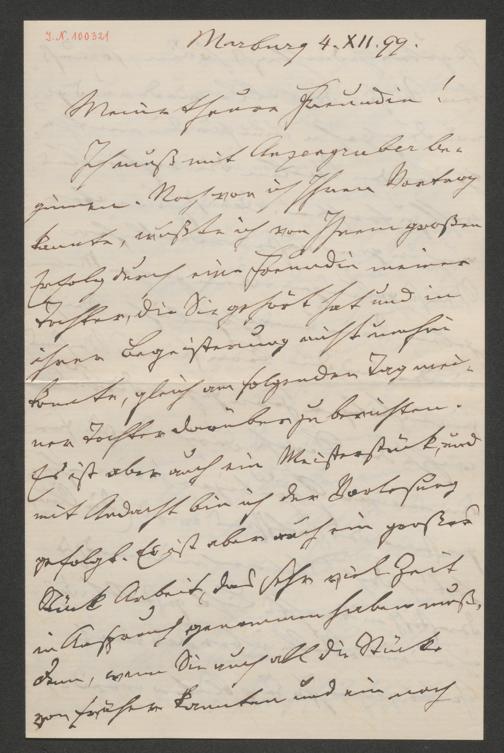 J.N. 100321
Marburg 4. XII. 99.
Meine theure Freundin!
Ich muß mit Anzengruber be-
ginnen. Noch vor ich Ihren Vortrag
kannte, wußte ich von Ihrem großen
Erfolg durch eine Freundin meiner
Tochter, die Sie gehört hat und in
ihrer Begeisterung nicht umhin
konnte, gleich am folgenden Tag mei-
ner Tochter darüber zu berichten.
Es ist aber auch ein Meisterstück, und
mit Andacht bin ich der Vorlesung
gefolgt. Es ist aber auch ein großes
Stück Arbeit, das sehr viel Zeit
in Anspruch genommen haben muß,
denn, wenn Sie auch all die Stücke
von früher kannten und ein noch